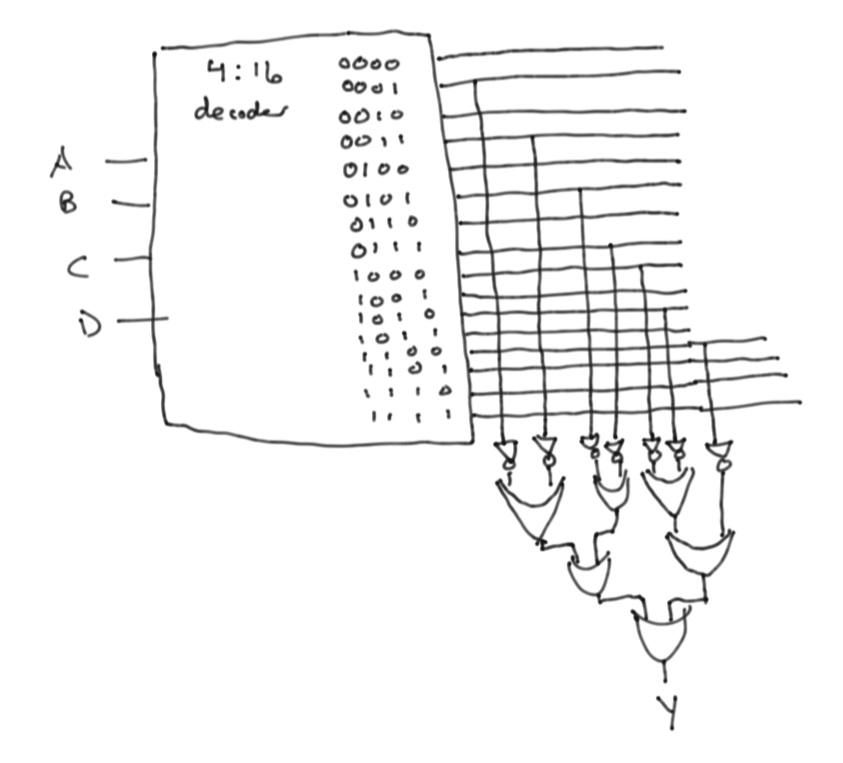 4:16
decoder
0000
0001
0010
0011
0100
0101
0110
0111
1000
1001
1010
1011
1100
1101
1110
1111
A
B
C
D
Y